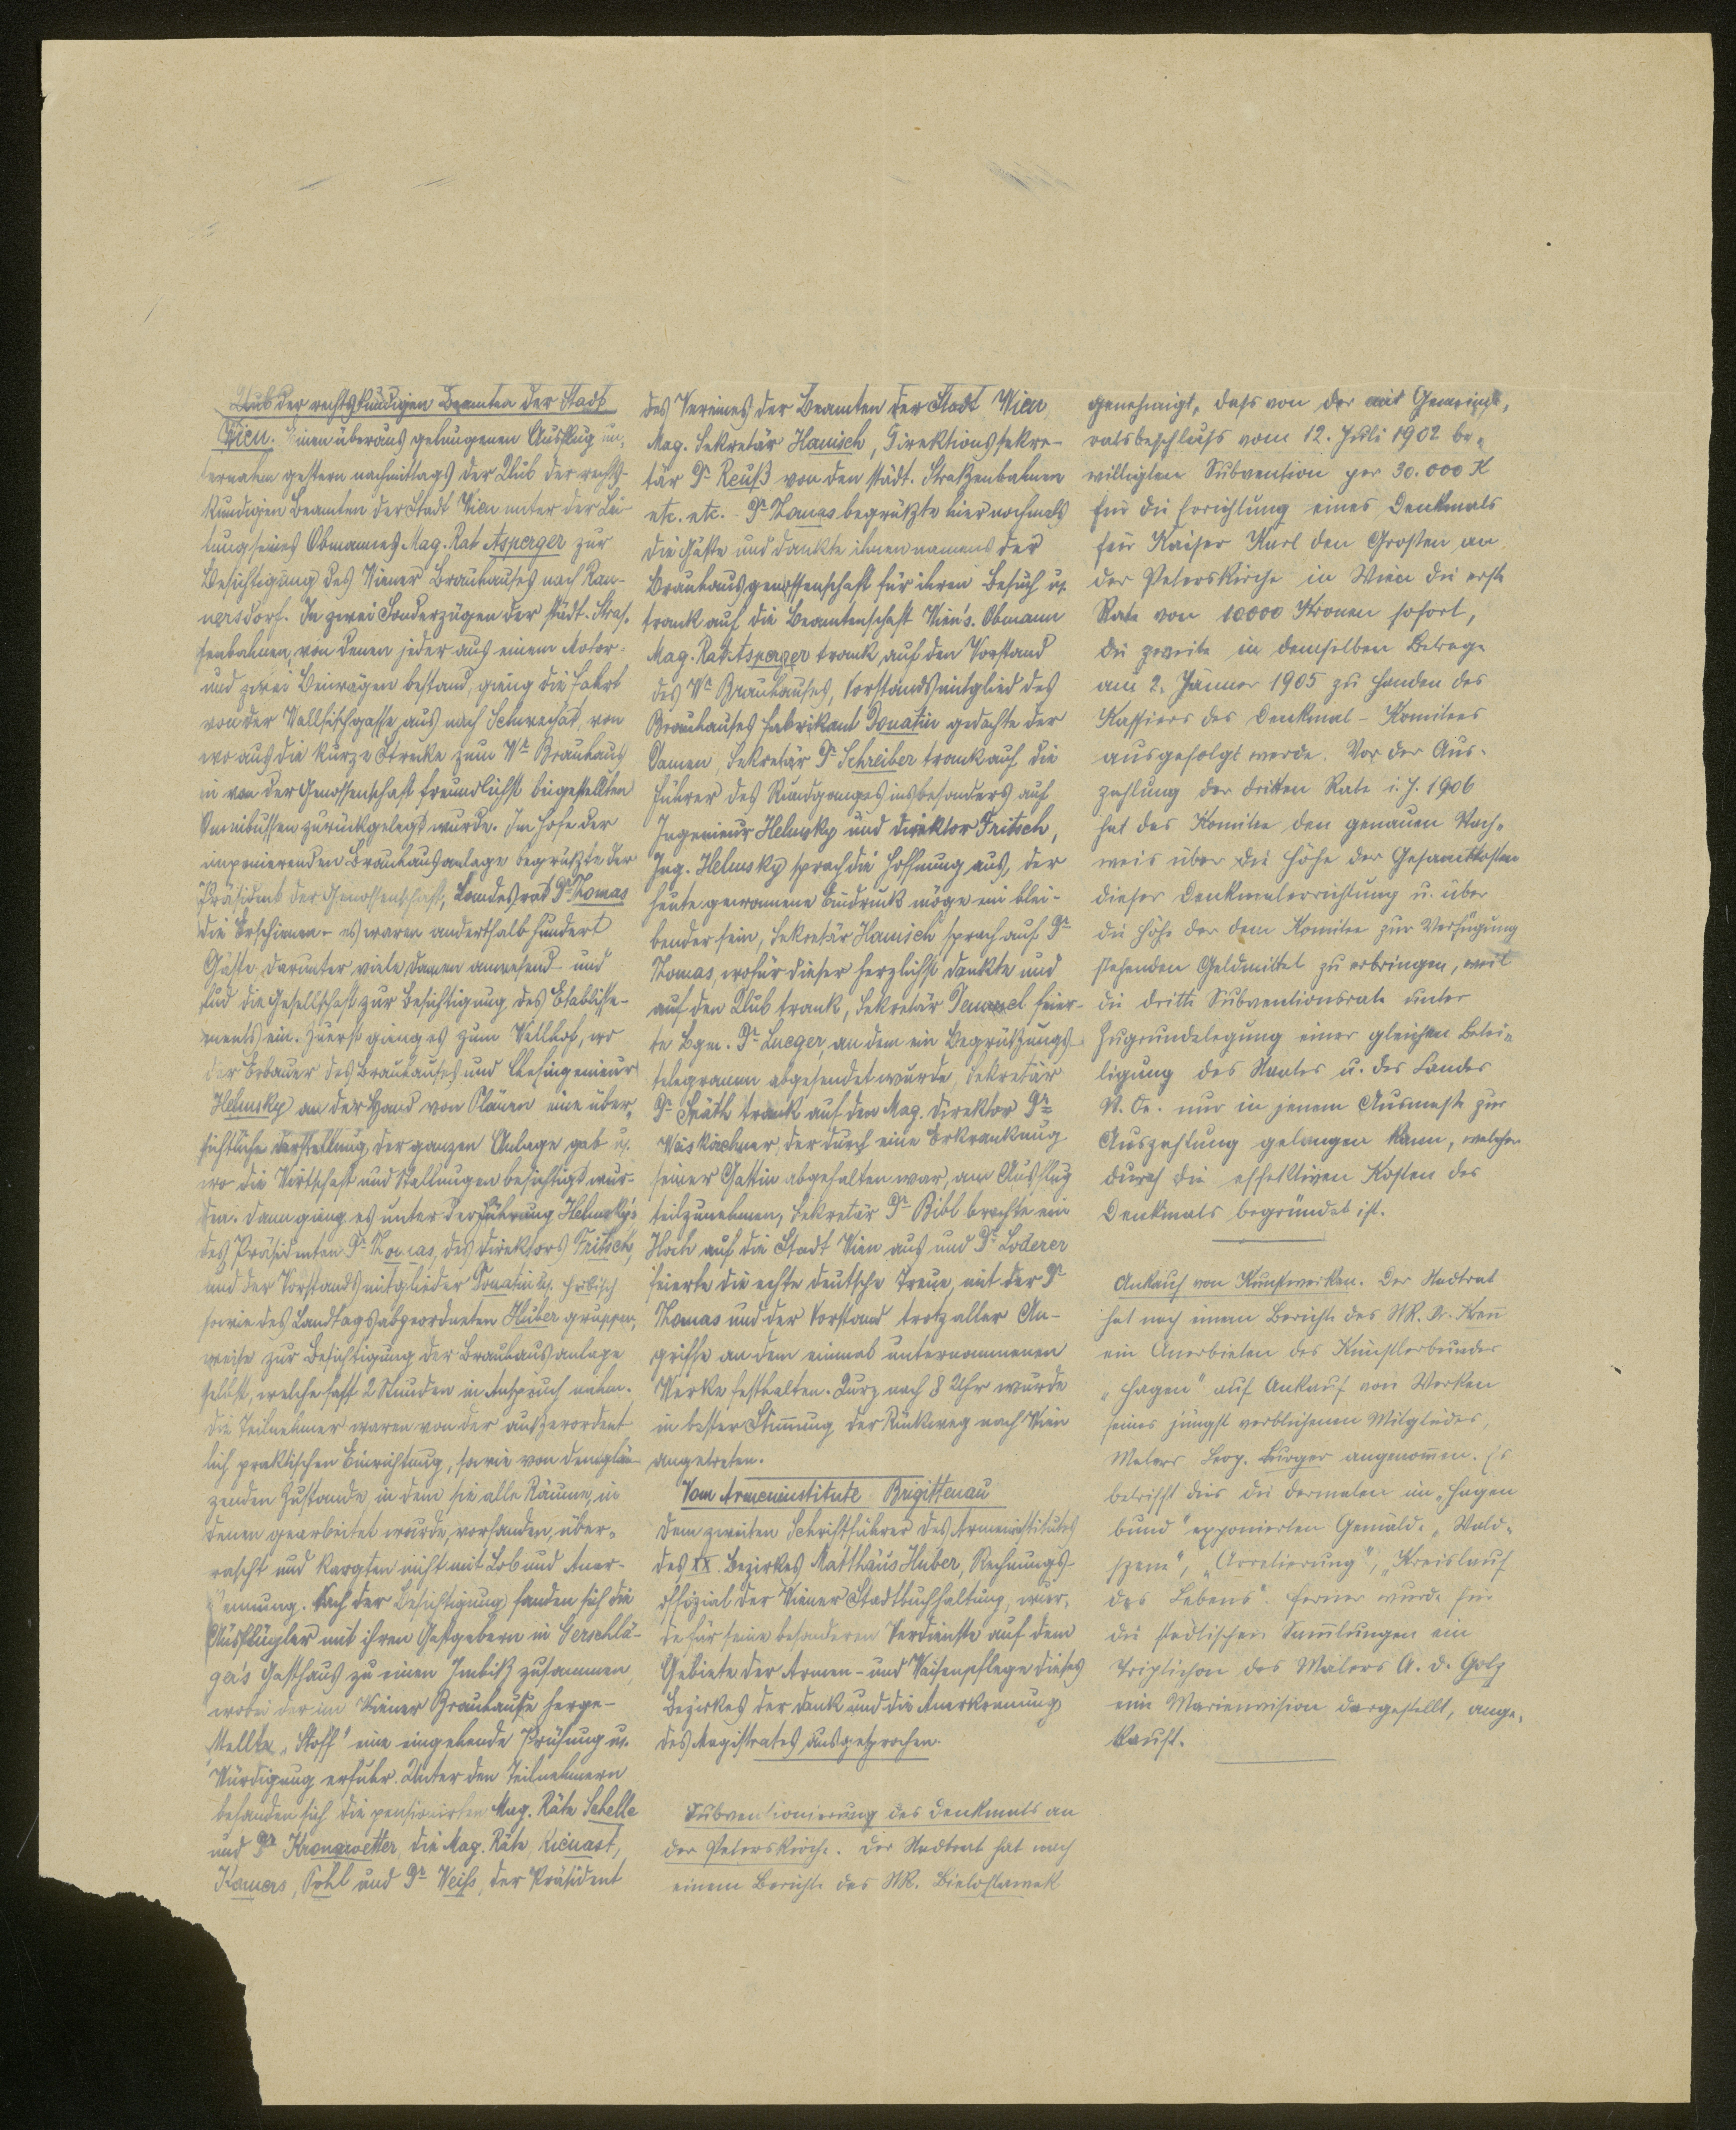 Club der rechtskundigen Beamten der Stadt
Wien. Einen überaus gelungenen Ausflug un-
ternahm gestern nachmittags der Club der rechts-
kundigen Beamten der Stadt Wien unter der Lei-
tung seines Obmannes Mag. Rat Asperger zur
Besichtigung des Wiener Brauhauses nach Ran-
nersdorf. In zwei Sonderzügen der städt. Stras-
senbahnen, von denen jeder aus einem Motor-
und zwei Beiwägen bestand, gieng die Fahrt
von der Wallfischgasse aus nach Schwechat, von
wo aus die kurze Strecke zum Wr Brauhaus
in von der Genossenschaft freundlichst beigestellten
Omnibussen zurückgelegt wurde. Im Hofe der
imponierenden Brauhausanlage begrüßte der
Präsident der Genossenschaft, Landesrat Dr Thomas
die Erschienen - es waren anderthalb hundert
Gäste, darunter viele Damen anwesend - und
lud die Gesellschaft zur Besichtigung des Etablisse-
ments ein. Zuerst gieng es zum, wo
der Erbauer des Brauhauses und Chefingenieur
Helmsky an der Hand von Plänen eine über-
sichtliche Darstellung der ganzen Anlage gab u.
wo die Wirtschaft und Stallungen besichtigt wur-
den. Dann gieng es unter der Führung Helmsky's
des Präsidenten Dr Thomas, des Direktors Fritsch,
und der Vorstandsmitglieder Donatin u.
sowie des Landtagsabgeordneten Huber gruppen-
weise zur Besichtigung der Brauhausanlage
selbst, welche fast 2 Stunden in Anspruch nahm.
Die Teilnehmer waren von der außerordent
lich praktischen Einrichtung, sowie von dem glän-
zenden Zustande, in dem sie alle Räume, in
denen gearbeitet wurde, vorfanden, über-
rascht und kargten nicht mit Lob und Aner-
kennung. Nach der Besichtigung fanden sich die
Ausflügler mit ihren Gastgebern in Gerschlä-
ger's Gasthaus zu einen Imbiß zusammen,
wobei der im Wiener Brauhause herge-
stellte "Stoff" eine eingehende Prüfung u.
Würdigung erfuhr. Unter den Teilnehmern
befanden sich die pensionirten Mag. Räte Schelle
und Dr Kronawetter, die Mag. Räte Kienast,
Pohl und Dr Weiss, der Präsident
des Vereines der Beamten der Stadt Wien
Mag. Sekretär Hanisch, Direktionssekre-
tär Dr Reuß von den städt. Straßenbahnen
etc. etc. - Dr Thomas begrüßte hier nochmals
die Gäste und dankte ihnen namens der
Brauhausgenossenschaft für ihren Besuch u.
trank auf die Beamtenschaft Wien's. Obmann
Mag. Rat Asperger trank auf den Vorstand
des Wr Brauhauses, Vorstandsmitglied des
Brauhauses Fabrikant Donatin gedachte der
Damen, Sekretär Dr Schreiber trank auf die
Führer des Rundganges insbesonders auf
Ingenieur Helmsky und Direktor Fritsch,
Ing. Helmsky sprach die Hoffnung aus, der
heute gewonnene Eindruck möge ein blei-
bender sein, Sekretär Hanisch sprach auf Dr
Thomas, wofür dieser herzlichst dankte und
auf den Club trank, Sekretär feier-
te Bgm. Dr Lueger, an dem ein Begrüßungs-
telegramm abgesendet wurde, Sekretär
Dr Späth trank auf den Mag. Direktor Dr
Weiskirchner, der durch eine Erkrankung
seiner Gattin abgehalten war, am Ausflug
teilzunehmen, Sekretär Dr Bibl brachte ein
Hoch auf die Stadt Wien aus und Dr Loderer
feierte die echte deutsche Treue, mit der Dr
Thomas und der Vorstand trotz aller An-
griffe an dem einmal unternommenen
Werke festhalten. Kurz nach 8 Uhr wurde
in bester Stimmung der Rückweg nach Wien
angetreten.
Vom Armeninstitute Brigittenau
Dem zweiten Schriftführer des Armeninstitutes
des XX. Bezirkes Matthäus Huber, Rechnungs-
offizial der Wiener Stadtbuchhaltung, wur-
de für seine besonderen Verdienste auf dem
Gebiete der Armen- und Waisenpflege dieses
Bezirkes der Dank und die Anerkennung
des Magistrates ausgesprochen.
Subventionierung des Denkmals an
der Peterskirche. Der Stadtrat hat nach
einem Berichte des StR. Bielohlawek
genehmigt, dass von der mit Gemeinde-
ratsbeschluss vom 12. Juli 1902 be-
willigten Subvention per 30.000 K
für die Errichtung eines Denkmals
für Kaiser Karl den Grossen an
der Peterskirche in Wien die erste
Rate von 10000 Kronen sofort,
die zweite in demselben Betrage
am 2. Jänner 1905 zu Handen des
Kassiers des Denkmal-Komitees
ausgefolgt werde. Vor der Aus-
zahlung der dritten Rate i. J. 1906
hat das Komitee den genauen Nach-
weis über die Höhe der Gesamtkosten
dieser Denkmalerrichtung u. über
die Höhe der dem Komitee zur Verfügung
stehenden Geldmittel zu erbringen, weil
die dritte Subventionsrate unter
Zugrundelegung einer gleichen Betei-
ligung des Staates u. des Landes
N. Oe. nur in jenem Ausmasse zur
Auszahlung gelangen kann, welcher
durch die effektiven Kosten des
Denkmals begründet ist.
Ankauf von Kunstwerken. Der Stadtrat
hat nach einem Berichte des StR. Dr. Krenn
ein Anerbieten des Künstlerbundes
"Hagen" auf Ankauf von Werken
seines jüngst verblichenen Mitgliedes,
Malers Leop. Burger angenommen. Es
betrifft dies die dermalen im "Hagen
bund" exponierten Gemälde "Wald-
szene", "Arretierung", "Kreislauf
des Lebens". Ferner wurde für
die städtischen Sammlungen ein
Triptichon des Malers A. D. Goltz
eine Marienvision dargestellt, ange-
kauft.